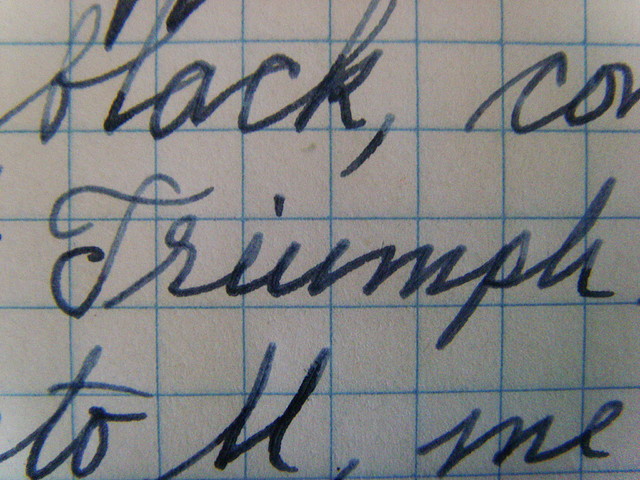 black, con
Triumph
to U, me